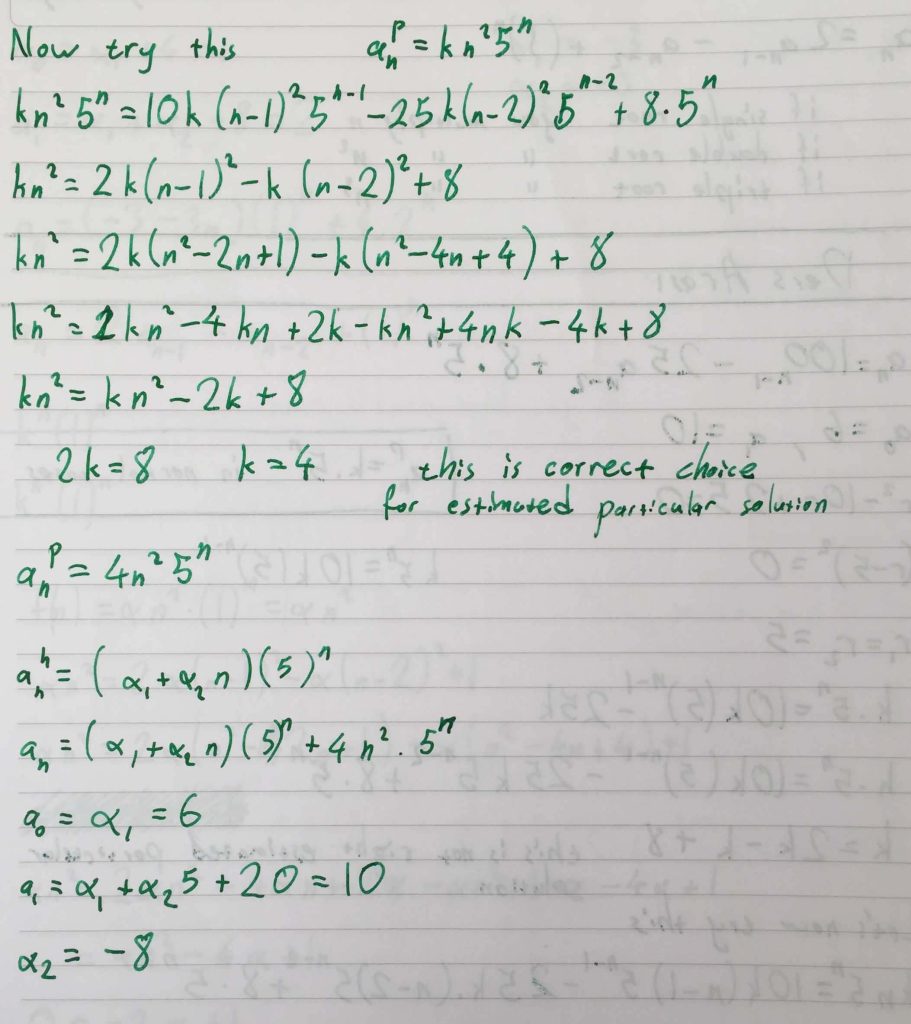 Now try this aₙᵖ = kn²5ⁿ
kn²5ⁿ = 10k(n-1)²5ⁿ⁻¹ - 25k(n-2)²5ⁿ⁻² + 8·5ⁿ
kn² = 2k(n-1)² - k(n-2)² + 8
kn² = 2k(n²-2n+1) - k(n²-4n+4) + 8
kn² = 2kn² - 4kn + 2k - kn² + 4nk - 4k + 8
kn² = kn² - 2k + 8
2k = 8 k = 4 this is correct choice
for estimated particular solution
aₙᵖ = 4n²5ⁿ
aₙʰ = (α₁+α₂n)(5)ⁿ
aₙ = (α₁+α₂n)(5)ⁿ + 4n²·5ⁿ
a₀ = α₁ = 6
a₁ = α₁+α₂5 + 20 = 10
α₂ = -8